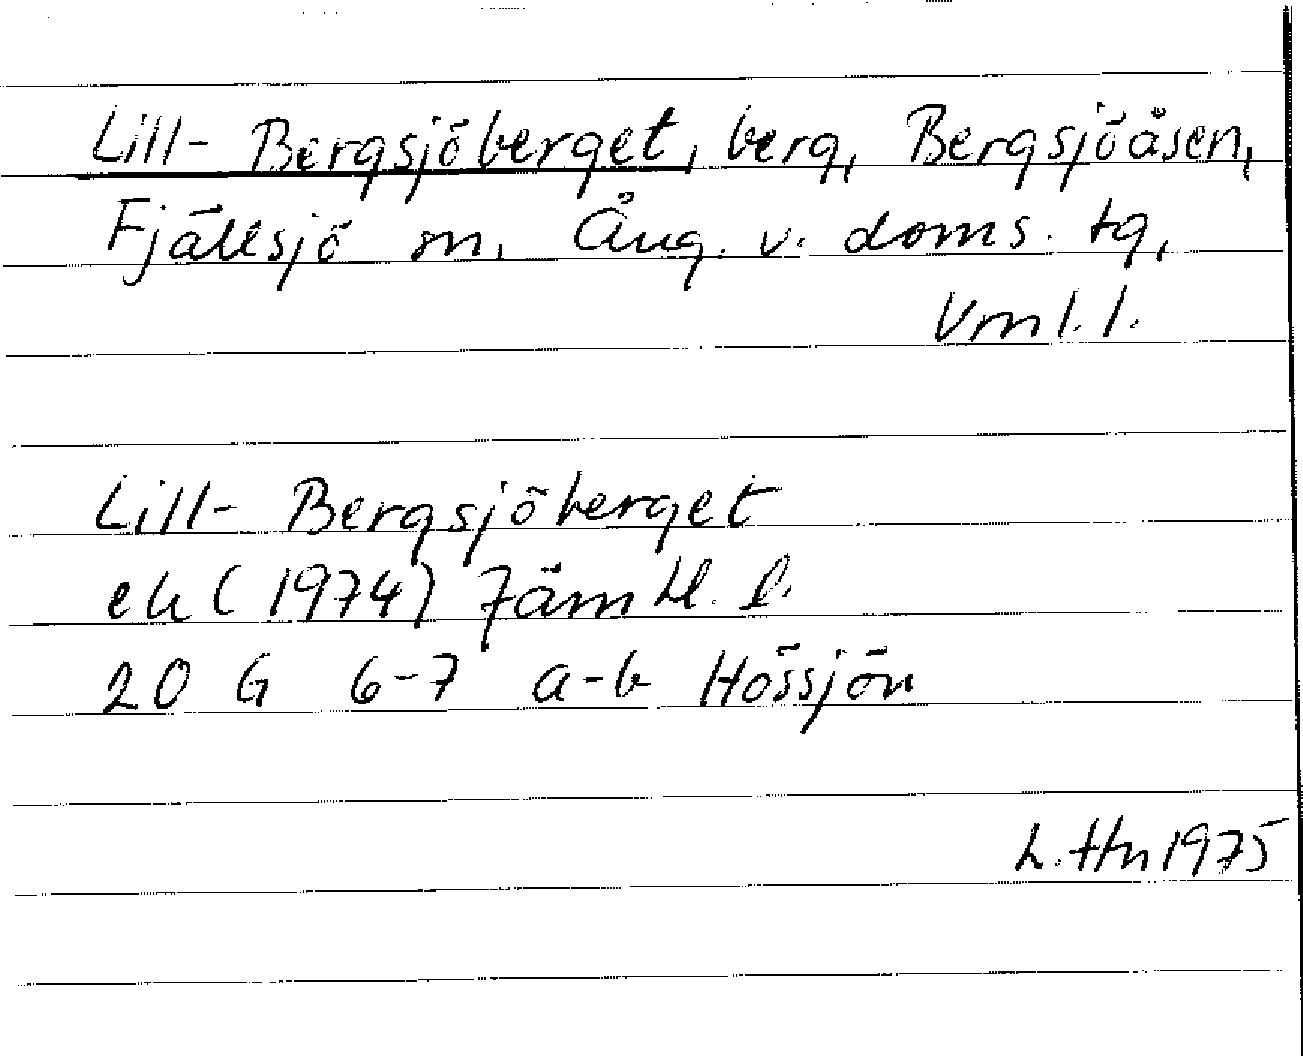 Lill-Bergsjöberget, berg, Bergsjöåsen,
Fjällsjö sn, Ång. v. doms. tg,
Vnl. l.
Lill-Bergsjöberget
ek (1974) Jämtl. l.
20 G 6-7 a-b Hössjön
L. Hn 1975